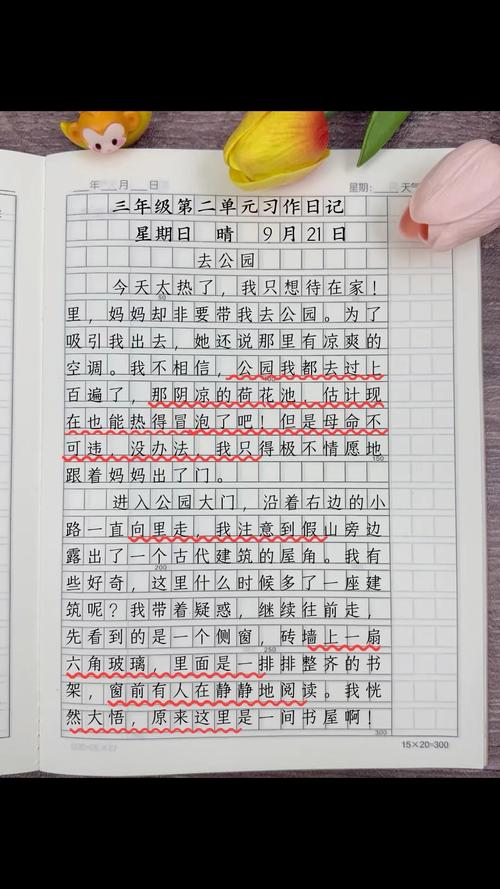 年 月 日 星期： 天气
三年级第二单元习作日记
星期日 晴 9月21日
去公园
今天太热了，我只想待在家！
50
里，妈妈却非要带我去公园。为了
吸引我出去，她还说那里有凉爽的
空调。我不相信，公园我都去过上
百遍了，那阴凉的荷花池，估计现
在也能热得冒泡了吧！但是母命不
可违，没办法，我只得极不情愿地
150
跟着妈妈出了门。
进入公园大门，沿着右边的小
路一直向里走，我注意到假山旁边
露出了一个古代建筑的屋角。我有
200
些好奇，这里什么时候多了一座建
筑呢？我带着疑惑，继续往前走，
先看到的是一个侧窗，砖墙上一扇
250
六角玻璃，里面是一排排整齐的书
架，窗前有人在静静地阅读。我恍
然大悟，原来这里是一间书屋啊！
300
15×20=300